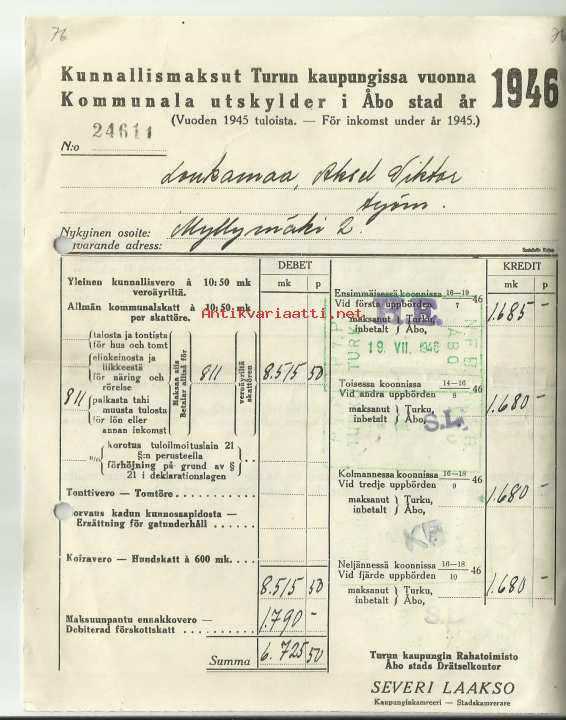 76
Kunnallismaksut Turun kaupungissa vuonna 1946
Kommunala utskylder i Åbo stad år
(Vuoden 1945 tuloista. — För inkomst under år 1945.)
N:o 24611
Loukamaa, Aksel Viktor
työm.
Nykyinen osoite: Myllymäki 2.
varande adress:
DEBET
mk p
KREDIT
mk p
Yleinen kunnallisvero à 10:50 mk
veroäyriltä.
Allmän kommunalskatt à 10:50 mk
per skattöre.
talosta ja tontista
för hus och tomt
elinkeinosta ja
liikkeestä
för näring och
rörelse
811 palkasta tahi
muusta tulosta
för lön eller
annan inkomst
Maksaa siis
Betalar alltså för
811
veroäyriltä
skattören
8.515 50
% korotus tuloilmoituslain 21
§:n perusteella
förhöjning på grund av §
21 i deklarationslagen
Tonttivero — Tomtöre
Korvaus kadun kunnossapidosta —
Ersättning för gatunderhåll
Koiravero — Hundskatt à 600 mk.
8.515 50
Maksuunpantu ennakkovero —
Debiterad förskottskatt
1.790 —
Summa 6.725 50
Ensimmäisessä koonnissa 16—19
Vid första uppbörden 7 46
maksanut } Turku,
inbetalt } Åbo,
1.685 —
H.E.
TURK
ÅBO
19. VII. 1946
Toisessa koonnissa 14—16
Vid andra uppbörden 8 46
maksanut } Turku,
inbetalt } Åbo,
1.680 —
S.L.
Kolmannessa koonnissa 16—18
Vid tredje uppbörden 9 46
maksanut } Turku,
inbetalt } Åbo,
1.680 —
Neljännessä koonnissa 16—18
Vid fjärde uppbörden 10 46
maksanut } Turku,
inbetalt } Åbo,
1.680 —
S.L.
Turun kaupungin Rahatoimisto
Åbo stads Drätselkontor
SEVERI LAAKSO
Kaupunginkamreeri — Stadskamrerare
Antikvariaatti.net